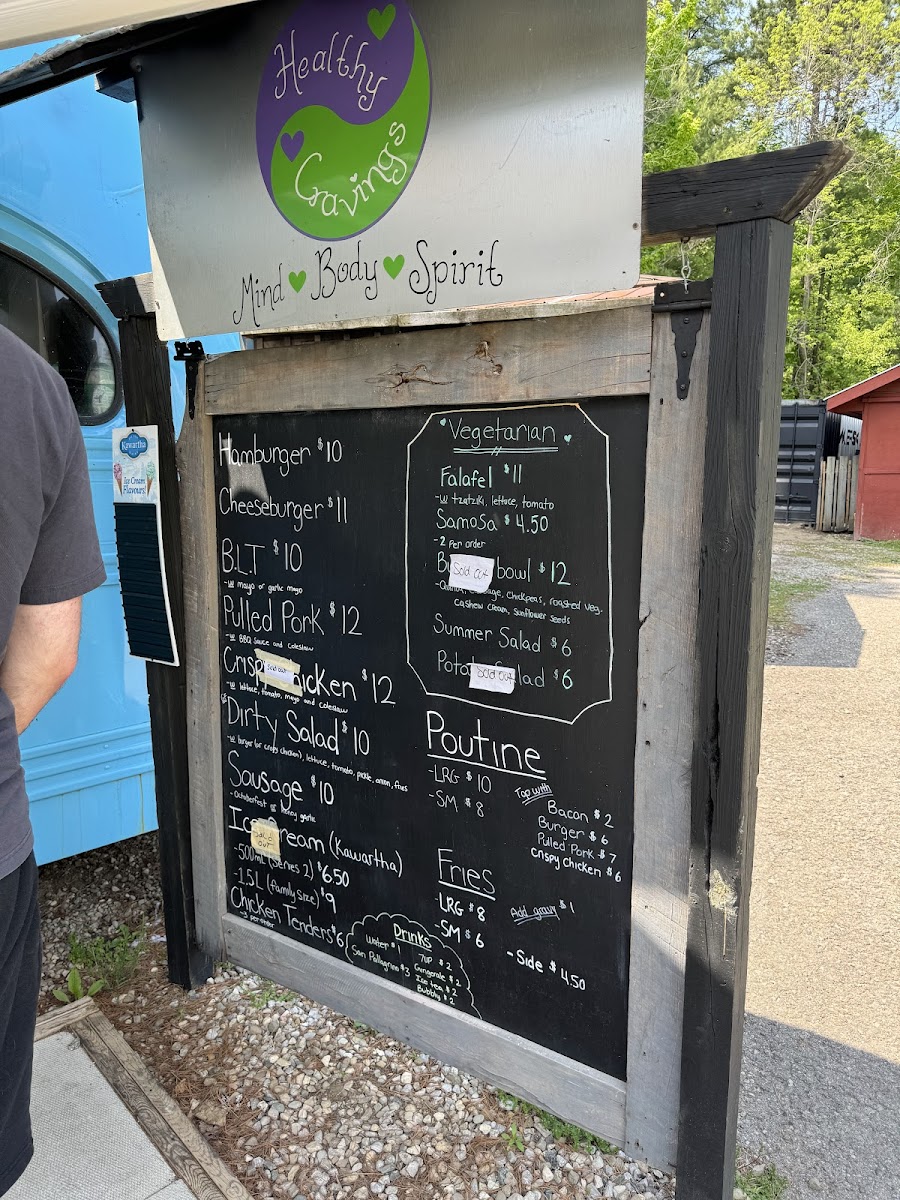 Healthy
Cravings
Mind Body Spirit
Kawartha
Ice Cream
Flavours!
Hamburger $10
Cheeseburger $11
B.L.T $10
-w mayo or garlic mayo
Pulled Pork $12
-w BBQ sauce and coleslaw
Sold out
Chicken $12
-w lettuce, tomato, mayo and coleslaw
Dirty Salad $10
-w burger (or crispy chicken), lettuce, tomato, pickle, onion, fries
Sausage $10
-Octoberfest or honey garlic
Ice Cream (Kawartha)
SOLD
OUT
-500mL (serves 2) $6.50
-1.5L (family size) $9
Chicken Tenders $6
-3 per order
Vegetarian
Falafel $11
-w tzatziki, lettuce, tomato
Samosa $4.50
-2 per order
Sold out
bowl $12
chickpeas, roasted veg,
cashew cream, sunflower seeds
Summer Salad $6
Sold out
Potato Salad $6
Poutine
-LRG $10
-SM $8
Top with
Bacon $2
Burger $6
Pulled Pork $7
Crispy Chicken $6
Fries
-LRG $8
-SM $6
Add gravy $1
-Side $4.50
Drinks
Water $1
San Pellegrino $3
7UP $2
Gingerale $2
Ice tea $2
Bubbly $2